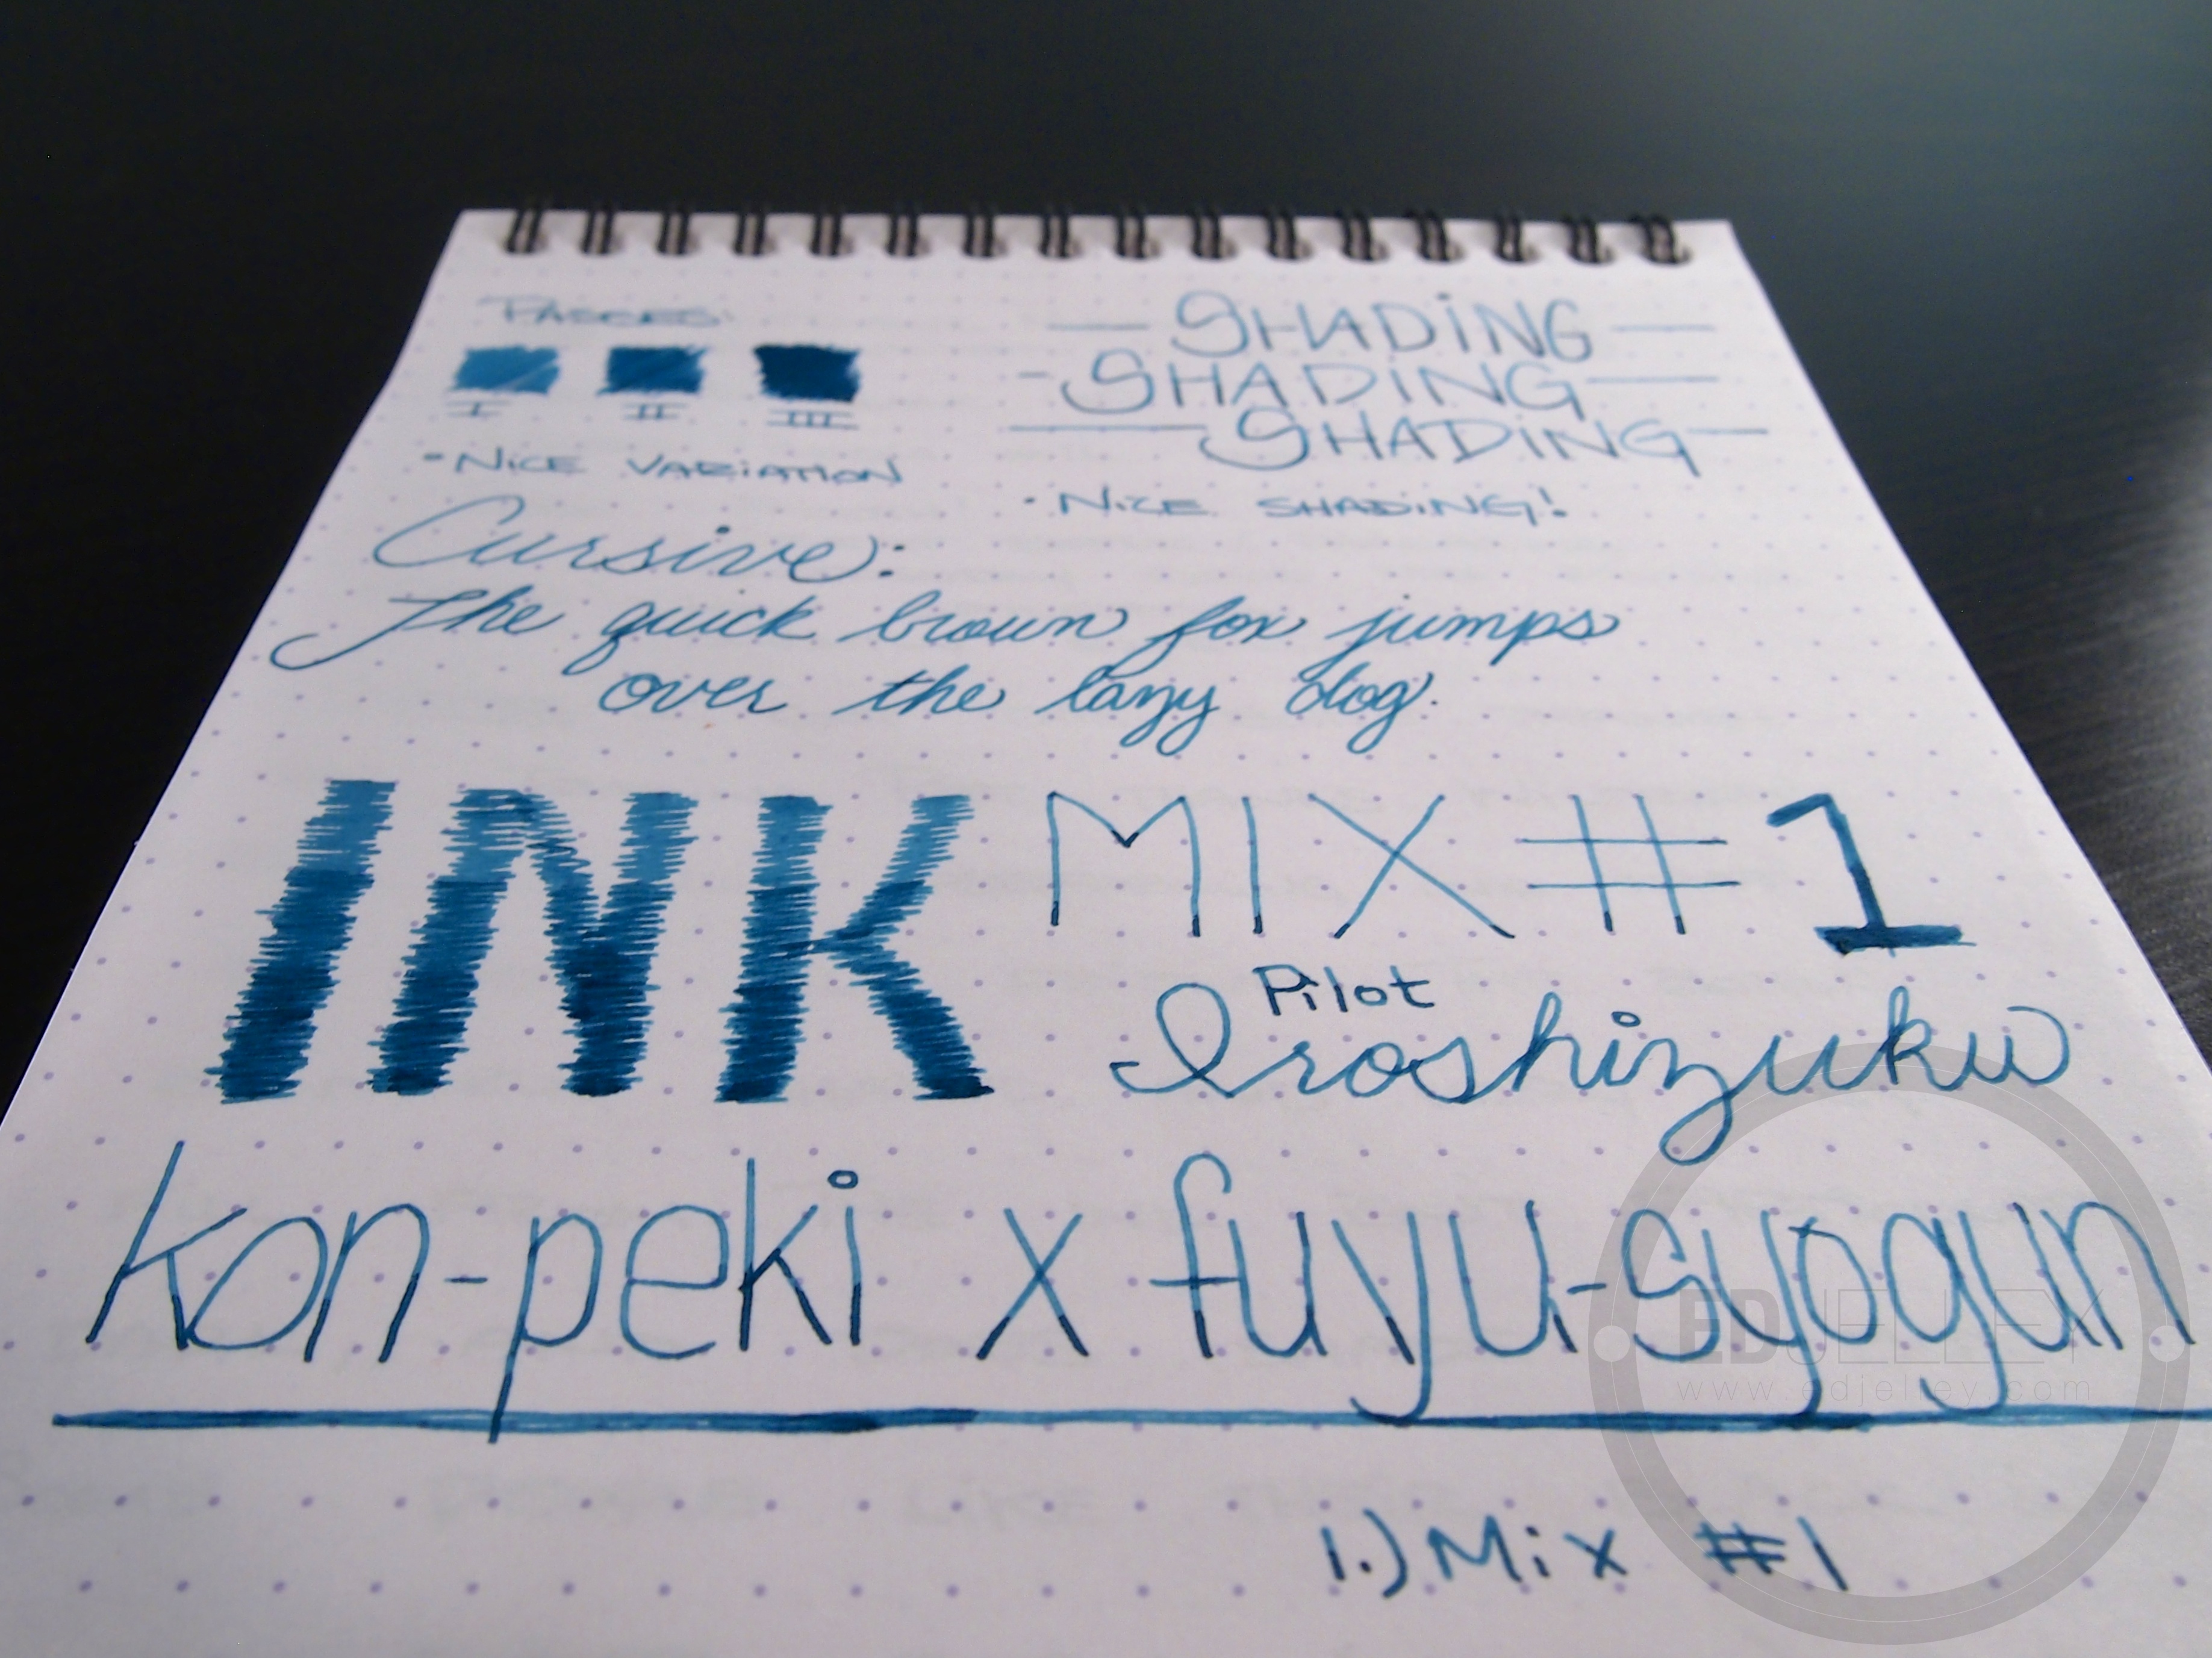 PASSES:
SHADING
SHADING
SHADING
I II III
- NICE VARIATION
- NICE SHADING!
Cursive:
The quick brown fox jumps
over the lazy dog.
INK MIX #1
Pilot
Iroshizuku
kon-peki x fuyu-syogun
EDJELLEY
www.edjelley.com
1.) Mix #1